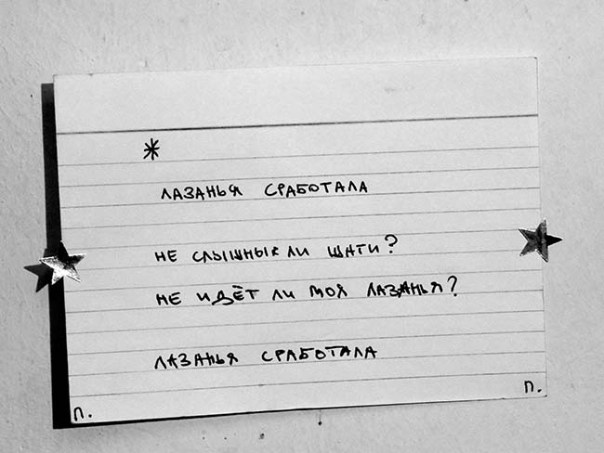 *
ЛАЗАНЬЯ СРАБОТАЛА
НЕ ЛИ ШАГИ?
НЕ ИДЁТ ЛИ МОЯ ЛАЗАНЬЯ?
ЛАЗАНЬЯ СРАБОТАЛА
П. П.